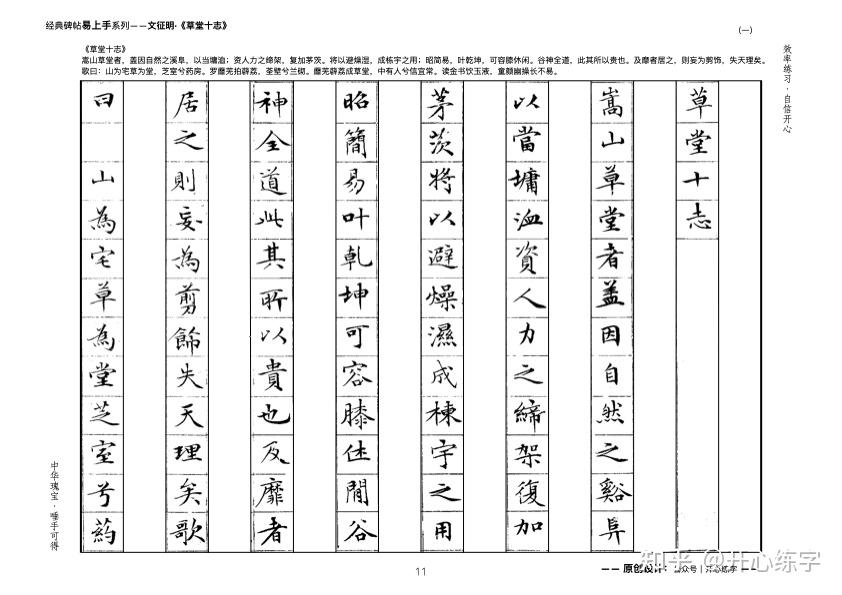 经典碑帖易上手系列——文征明·《草堂十志》
（一）
《草堂十志》
嵩山草堂者，盖因自然之溪阜，以当墉洫；资人力之缔架，复加茅茨。将以避燥湿，成栋宇之用；昭简易，叶乾坤，可容膝休闲。谷神全道，此其所以贵也。及靡者居之，则妄为剪饰，失天理矣。
歌曰：山为宅草为堂，芝室兮药房。罗蘼芜拍薜荔，荃壁兮兰砌。蘼芜薜荔成草堂，中有人兮信宜常。读金书饮玉液，童颜幽操长不易。
效率练习，自信开心
草堂十志
嵩山草堂者蓋因自然之谿阜
以當墉洫資人力之締架復加
茅茨將以避燥濕成棟宇之用
昭簡易叶乾坤可容膝休閒谷
神全道此其所以貴也及靡者
居之則妄為剪飾失天理矣歌
曰 山為宅草為堂芝室兮葯
中华瑰宝，唾手可得
11
—— 原创设计：公众号｜开心练字 ——
知乎 @开心练字